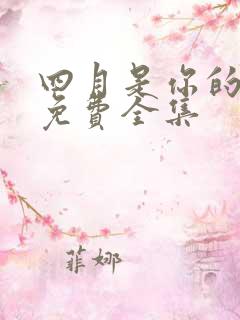 四月是你的
免費全集
菲娜